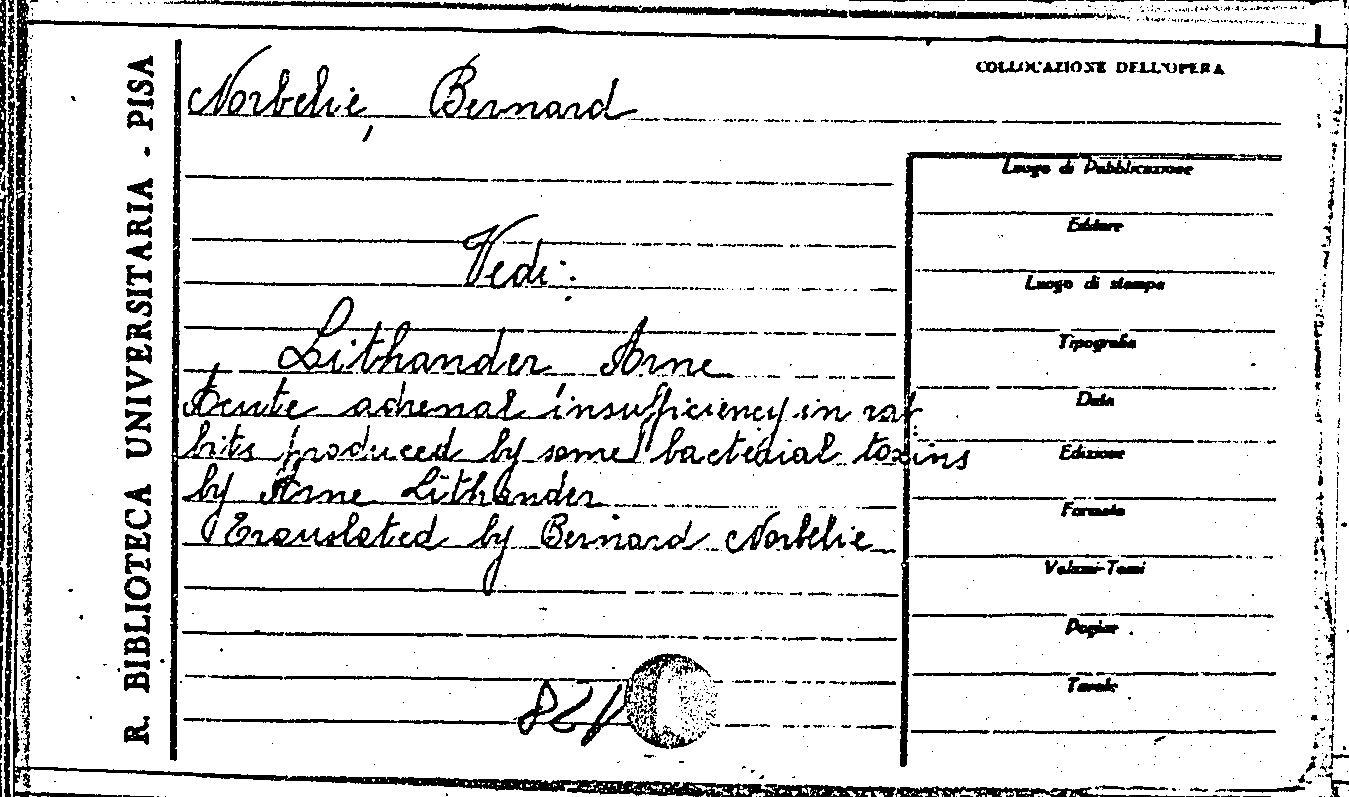 R. BIBLIOTECA UNIVERSITARIA - PISA
Norbelie, Bernard
COLLOCAZIONE DELL'OPERA
Vedi:
Lithander Arne
Acute adrenal insufficiency in rab
bits produced by some bacterial toxins
by Arne Lithander
Translated by Bernard Norbelie
Luogo di Pubblicazione
Editore
Luogo di stampa
Tipografia
Data
Edizione
Formato
Volumi-Tomi
Pagine
Tavole